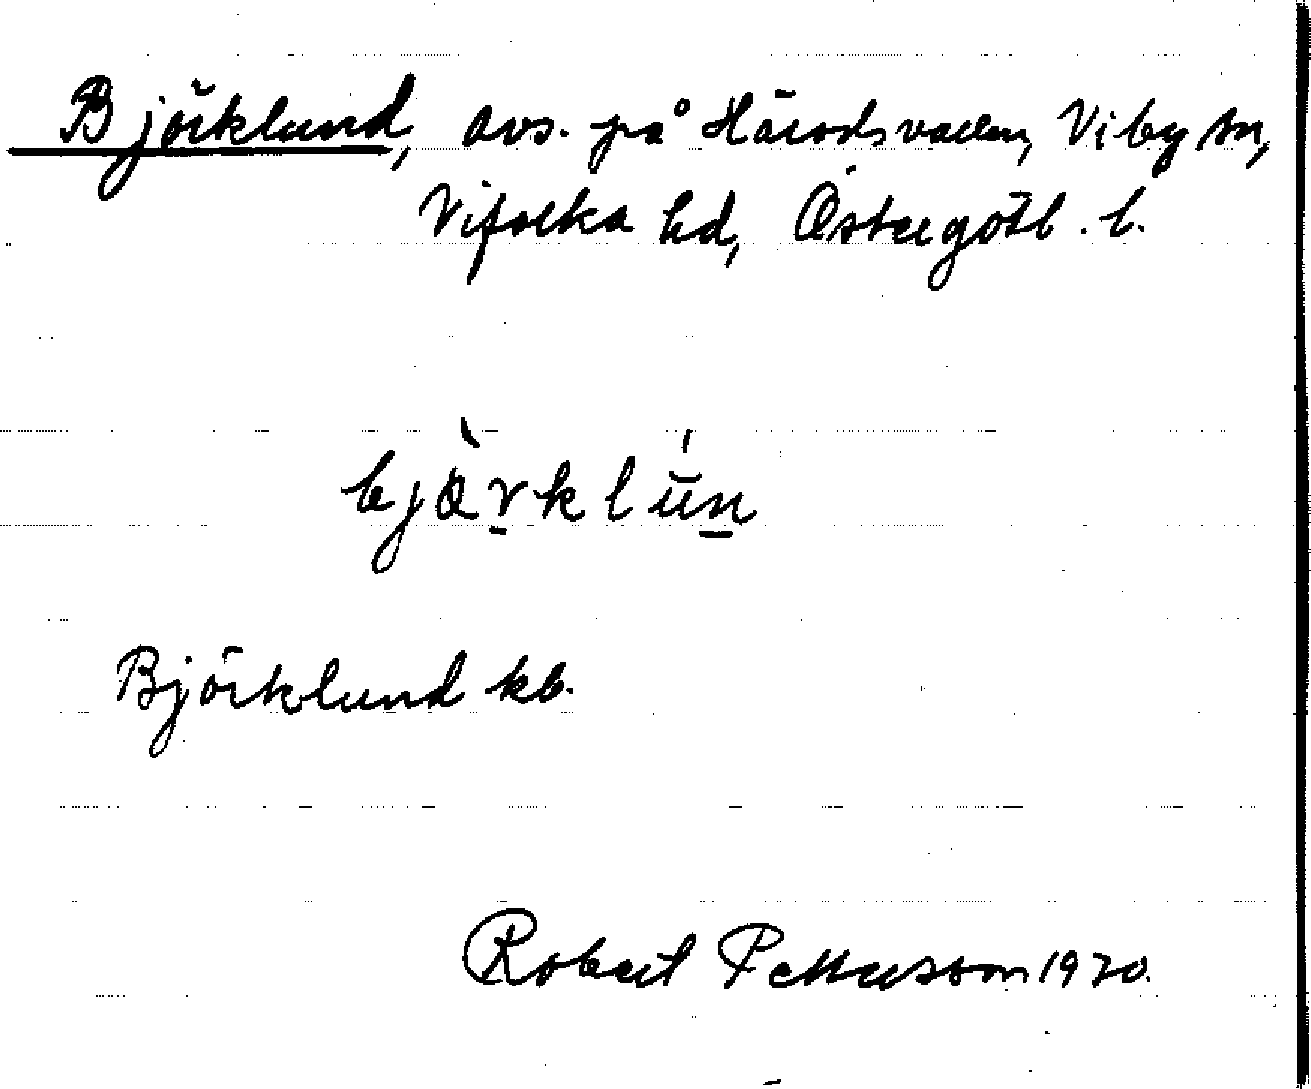 Björklund, avs. på Häradsvallen, Viby sn,
Vifolka hd, Östergötl. l.
bjö̀rklún
Björklund kb.
Robert Pettersson 1920.